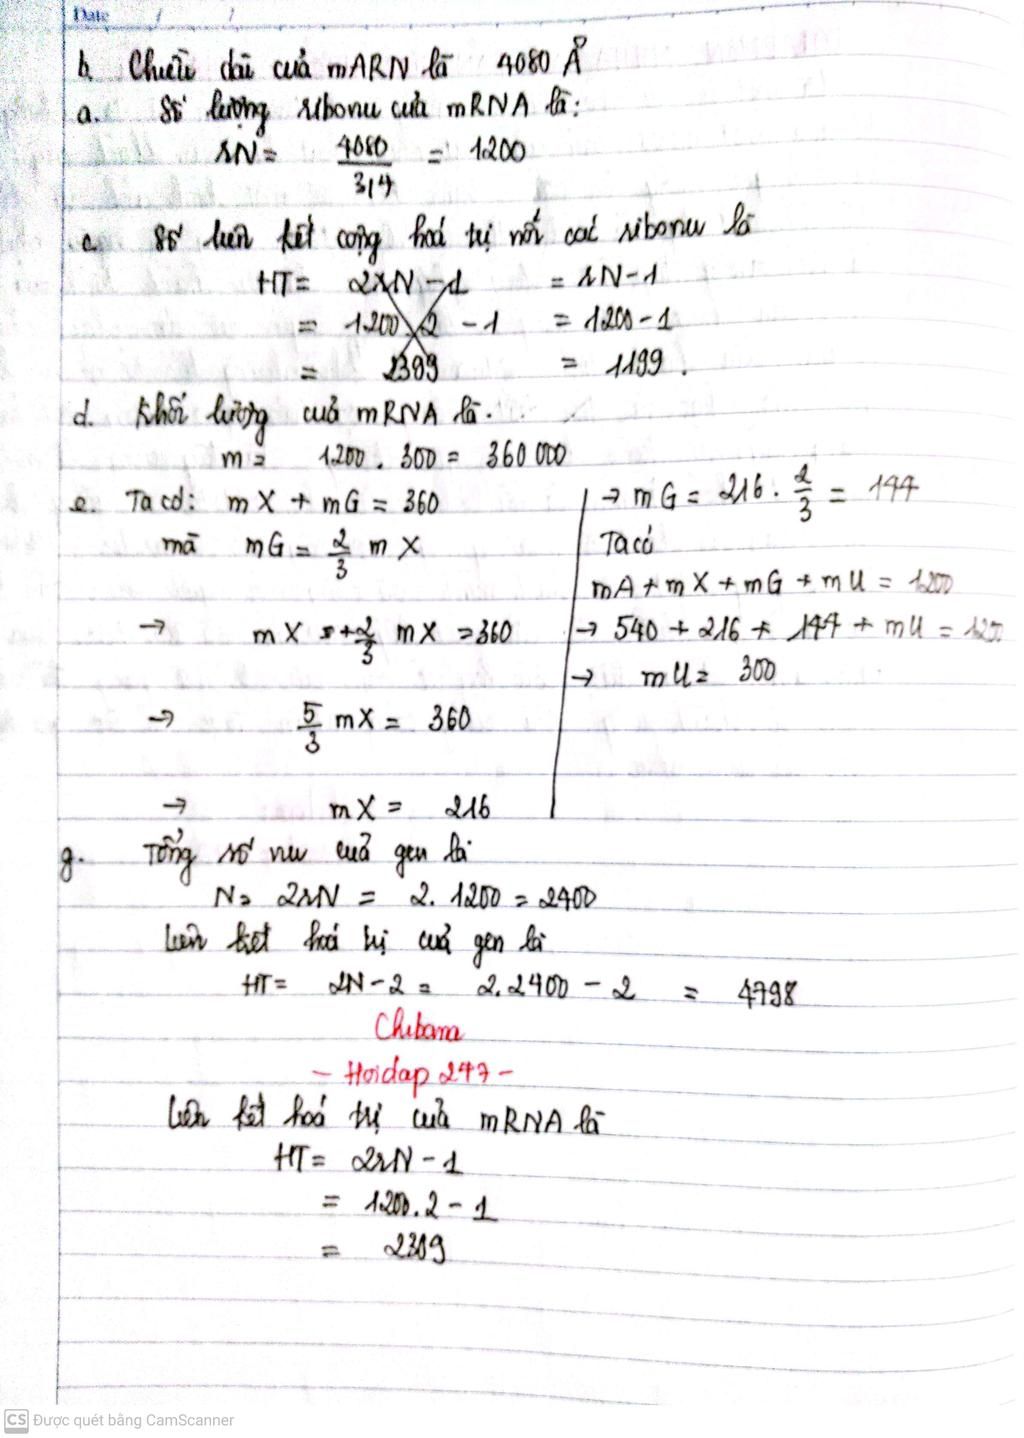 Date / /
b. Chiều dài của mARN là 4080 Å
a. Số lượng ribonu của mRNA là:
rN = 4080/3,4 = 1200
c. Số liên kết cộng hoá trị nối các ribonu là
HT = 2rN - 1 = rN - 1
= 1200.2 - 1 = 1200 - 1
= 2399 = 1199.
d. Khối lượng của mRNA là.
m = 1200 . 300 = 360 000
e. Ta có: mX + mG = 360
mà mG = 2/3 mX
→ mX + 2/3 mX = 360
→ 5/3 mX = 360
→ mX = 216
→ mG = 216 . 2/3 = 144
Ta có
mA + mX + mG + mU = 1200
→ 540 + 216 + 144 + mU = 1200
→ mU = 300
g. Tổng số nu của gen là
N = 2rN = 2. 1200 = 2400
Liên kết hoá trị của gen là
HT = 2N - 2 = 2.2400 - 2 = 4798
Chibana
- Hoidap 247 -
Liên kết hoá trị của mRNA là
HT = 2rN - 1
= 1200.2 - 1
= 2399
CS Được quét bằng CamScanner